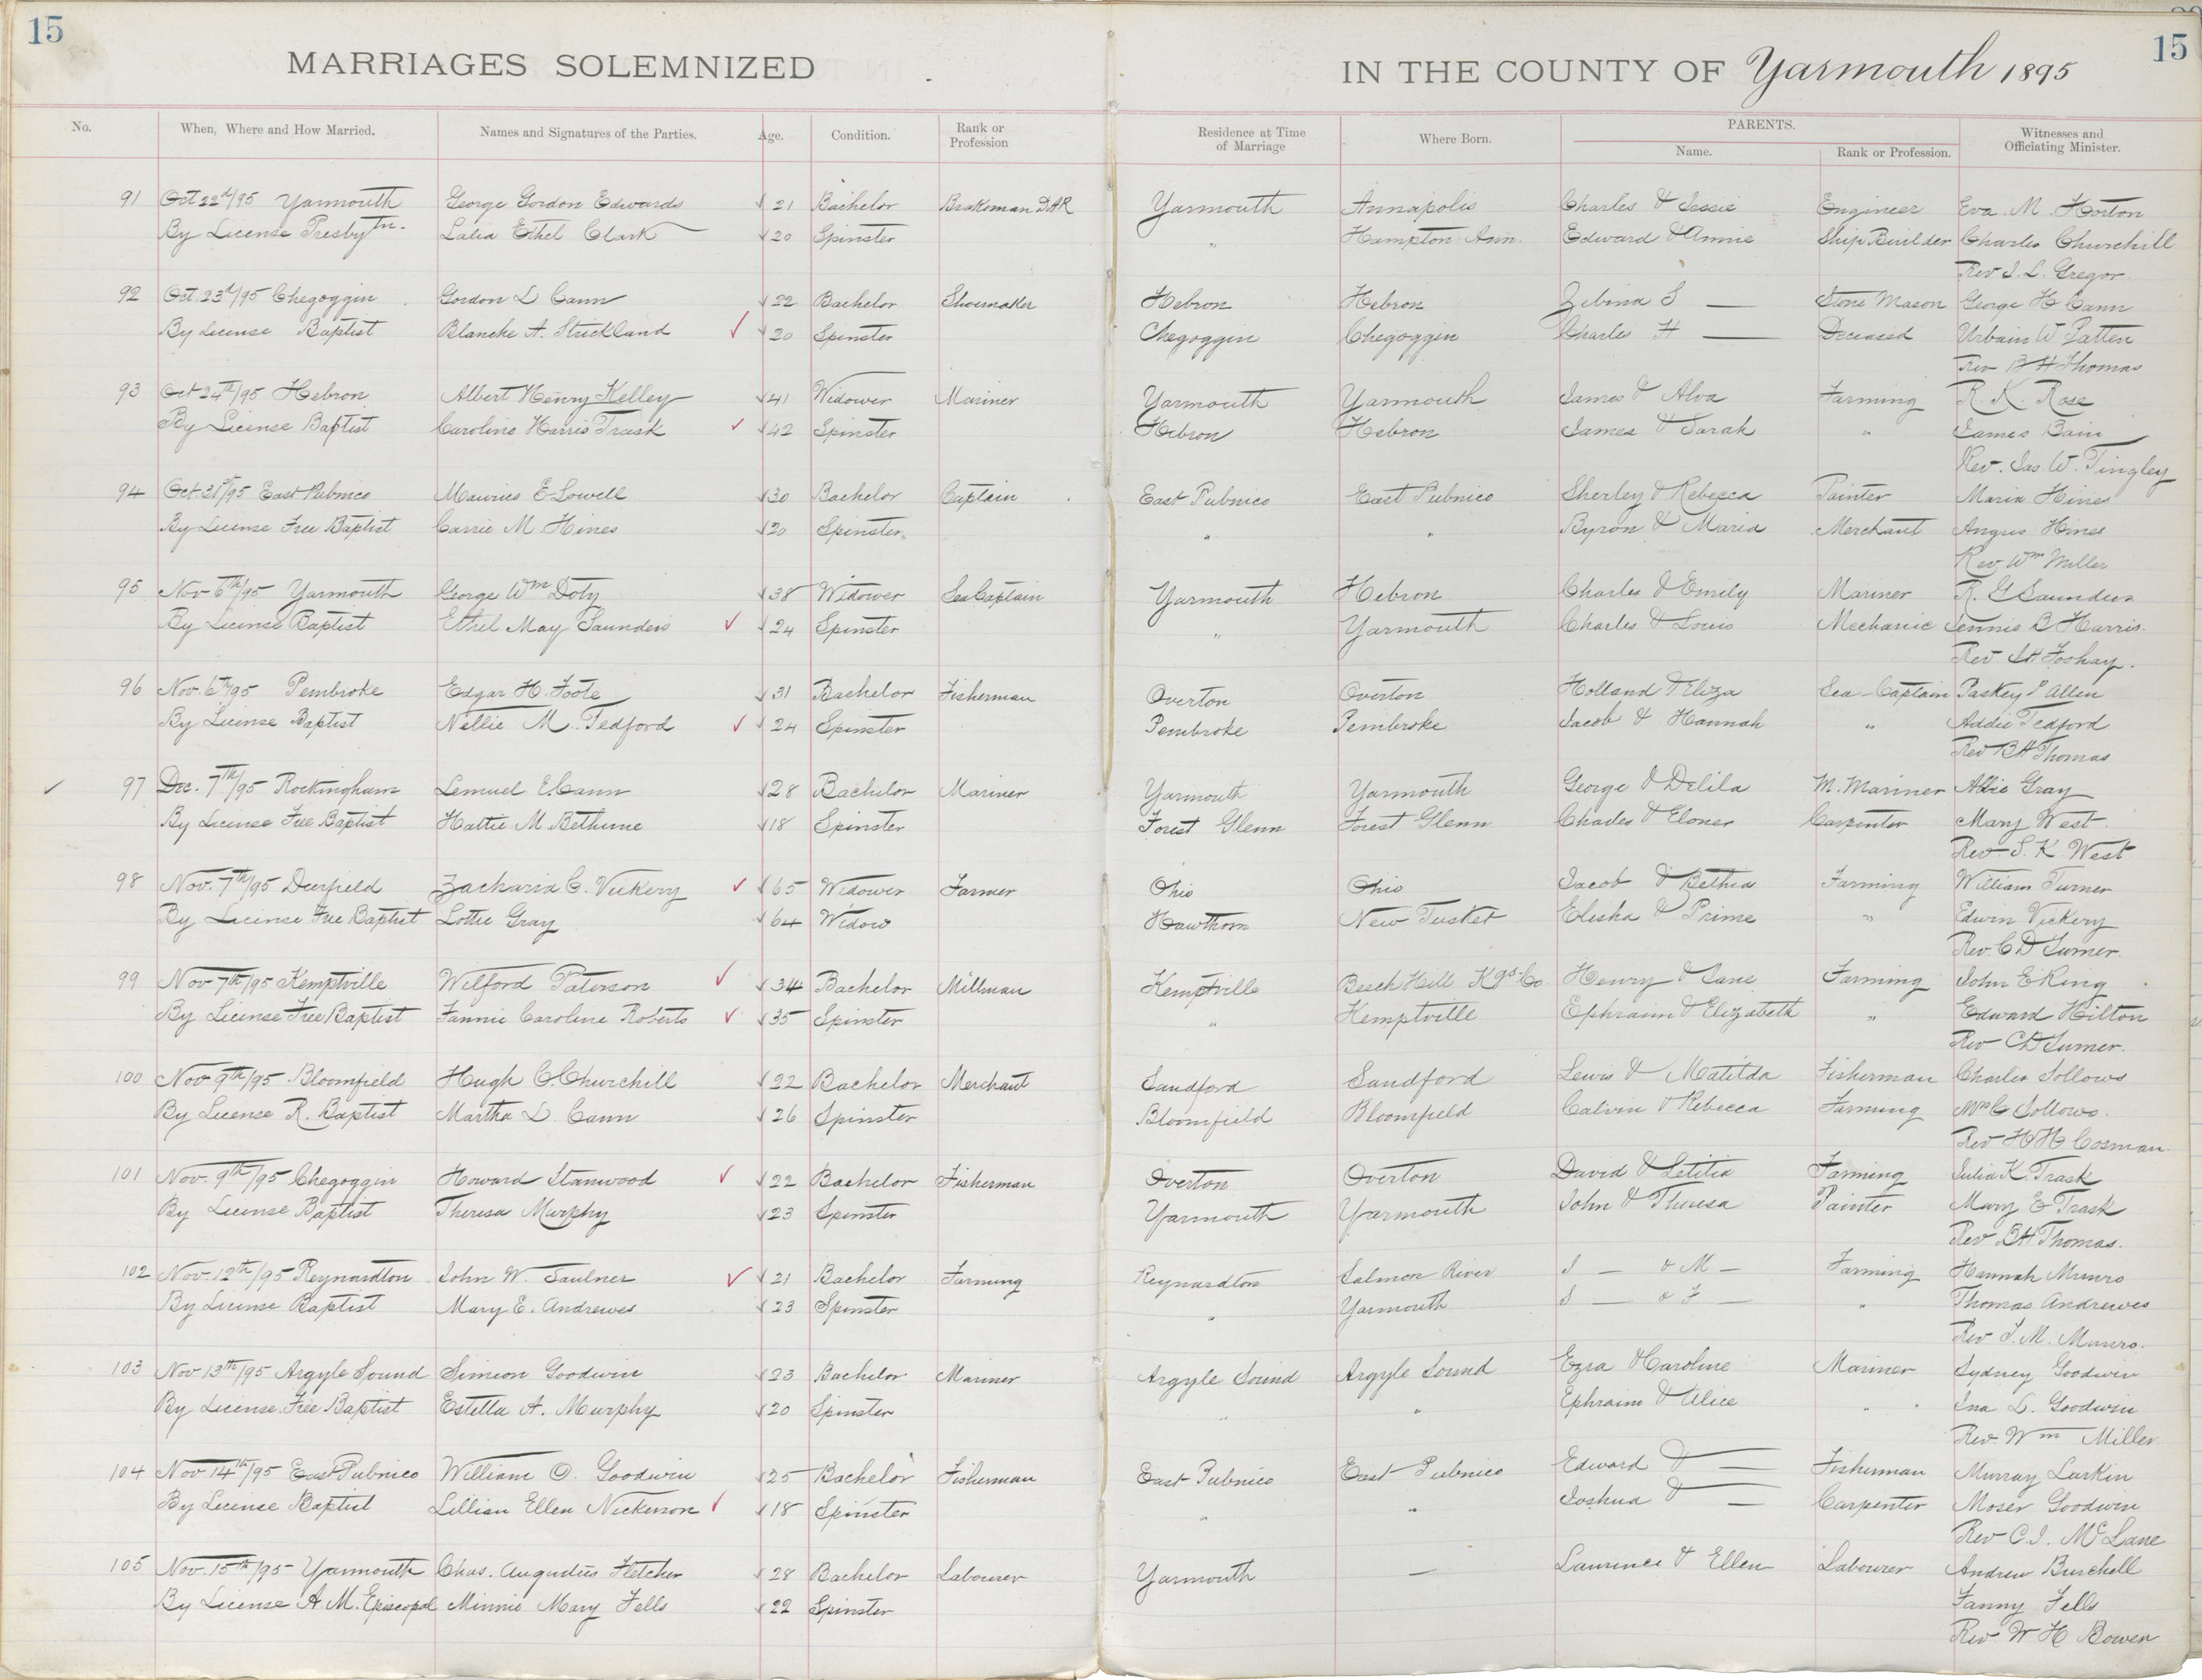 15
MARRIAGES SOLEMNIZED
IN THE COUNTY OF Yarmouth 1895
15
No. When, Where and How Married. Names and Signatures of the Parties. Age. Condition. Rank or Profession Residence at Time of Marriage Where Born. PARENTS. Name. Rank or Profession. Witnesses and Officiating Minister.
91 Oct 22d/95 Yarmouth George Gordon Edwards 21 Bachelor Braksman DAR Yarmouth Annapolis Charles & Jessie Engineer Eva M. Horton
By License Presbytn. Lalia Ethel Clark 20 Spinster " Hampton Ann. Edward & Annie Ship Builder Charles Churchill
Rev J. L. Gregor
92 Oct. 23d/95 Chegoggin Gordon D Cann 22 Bachelor Shoemaker Hebron Hebron Zebina S — Stone Mason George H Cann
By License Baptist Blanche A. Strickland ✓ 20 Spinster Chegoggin Chegoggin Charles H — Deceased Urbain W Patten
Rev B H Thomas
93 Oct 24th/95 Hebron Albert Henry Kelley 41 Widower Mariner Yarmouth Yarmouth James & Alva Farming R. K. Rose
By License Baptist Caroline Harris Trask ✓ 42 Spinster Hebron Hebron James & Sarah " James Bain
Rev. Jas W. Tingley
94 Oct. 31st/95 East Pubnico Maurice E Lowell 30 Bachelor Captain East Pubnico East Pubnico Sherley & Rebecca Painter Maria Hines
By License Free Baptist Carrie M Hines 20 Spinster " " Byron & Maria Merchant Angus Hines
Rev Wm Miller
95 Nov 6th/95 Yarmouth George Wm Doty 38 Widower Sea Captain Yarmouth Hebron Charles & Emily Mariner R. G Saunders
By License Baptist Ethel May Saunders ✓ 24 Spinster " Yarmouth Charles & Louis Mechanic Jennie B Harris.
Rev. J H Foshay.
96 Nov. 6th/95 Pembroke Edgar H. Foote 31 Bachelor Fisherman Overton Overton Holland & Eliza Sea-Captain Allen
By License Baptist Nellie M. Tedford ✓ 24 Spinster Pembroke Pembroke Jacob & Hannah " Addie Tedford
Rev B H Thomas
✓ 97 Dec. 7th/95 Rockingham Lemuel E. Cann 28 Bachelor Mariner Yarmouth Yarmouth George & Delila M. Mariner Abbie Gray
By License Free Baptist Hattie M. Bethune 18 Spinster Forest Glenn Forest Glenn Charles & Eloner Carpenter Mary West
Rev. S. K. West
98 Nov. 7th/95 Deerfield Zacharia C. Vickery ✓ 65 Widower Farmer Ohio Ohio Jacob & Bethia Farming William Turner
By License Free Baptist Lottie Gray 64 Widow Hawthorn New Tusket Elisha & Prime " Edwin Vickery
Rev. C D Turner.
99 Nov 7th/95 Kemptville Wilford Paterson ✓ 34 Bachelor Millman Kemptville Beech Hill Kgs. Co. Henry & Jane Farming John E King
By License Free Baptist Fannie Caroline Roberts ✓ 35 Spinster " Kemptville Ephraim & Elizabeth " Edward Hilton
Rev C D Turner.
100 Nov 9th/95 Bloomfield Hugh C. Churchill 22 Bachelor Merchant Sandford Sandford Lewis & Matilda Fisherman Charles Sollows
By License R. Baptist Martha D. Cann 26 Spinster Bloomfield Bloomfield Calvin & Rebecca Farming Mrs C Sollows.
Rev H H Cosman.
101 Nov. 9th/95 Chegoggin Howard Stanwood ✓ 22 Bachelor Fisherman Overton Overton David & Letitia Farming Julia K. Trask
By License Baptist Theresa Murphy 23 Spinster Yarmouth Yarmouth John & Theresa Painter Mary E Trask
Rev B H Thomas.
102 Nov. 12th/95 Reynardton John W. Saulner ✓ 21 Bachelor Farming Reynardton Salmon River J — & M — Farming Hannah Munro
By License Baptist Mary E. Andrewes 23 Spinster " Yarmouth J — & F — " Thomas Andrewes
Rev J. M. Munro.
103 Nov 13th/95 Argyle Sound Simeon Goodwin 23 Bachelor Mariner Argyle Sound Argyle Sound Ezra & Caroline Mariner Sydney Goodwin
By License Free Baptist Estella A. Murphy 20 Spinster " " Ephraim & Alice " Ina L. Goodwin
Rev. Wm Miller
104 Nov 14th/95 East Pubnico William O. Goodwin 25 Bachelor Fisherman East Pubnico East Pubnico Edward & — Fisherman Murray Larkin
By License Baptist Lillian Ellen Nickerson ✓ 18 Spinster " " Joshua & — Carpenter Moser Goodwin
Rev C. I. McLane
105 Nov. 15th/95 Yarmouth Chas. Augustus Fletcher 28 Bachelor Labourer Yarmouth — Laurence & Ellen Labourer Andrew Burchell
By License A M. Episcopal Minnie Mary Fells 22 Spinster Fanny Fells
Rev. W H Bowen